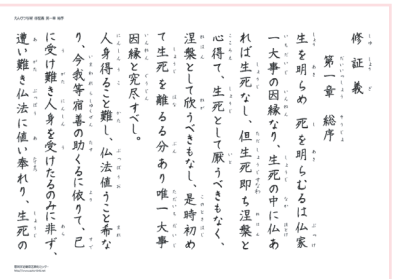 修証義
第一章 総序
生を明らめ 死を明らむるは仏家
一大事の因縁なり、生死の中に仏あ
れば生死なし、但生死即ち涅槃と
心得て、生死として厭うべきもなく、
涅槃として欣うべきもなし、是時初め
て生死を離るる分あり唯一大事
因縁と究尽すべし。
人身得ること難し、仏法値うこと希な
り、今我等宿善の助くるに依りて、已
に受け難き人身を受けたるのみに非ず、
遭い難き仏法に値い奉れり、生死の